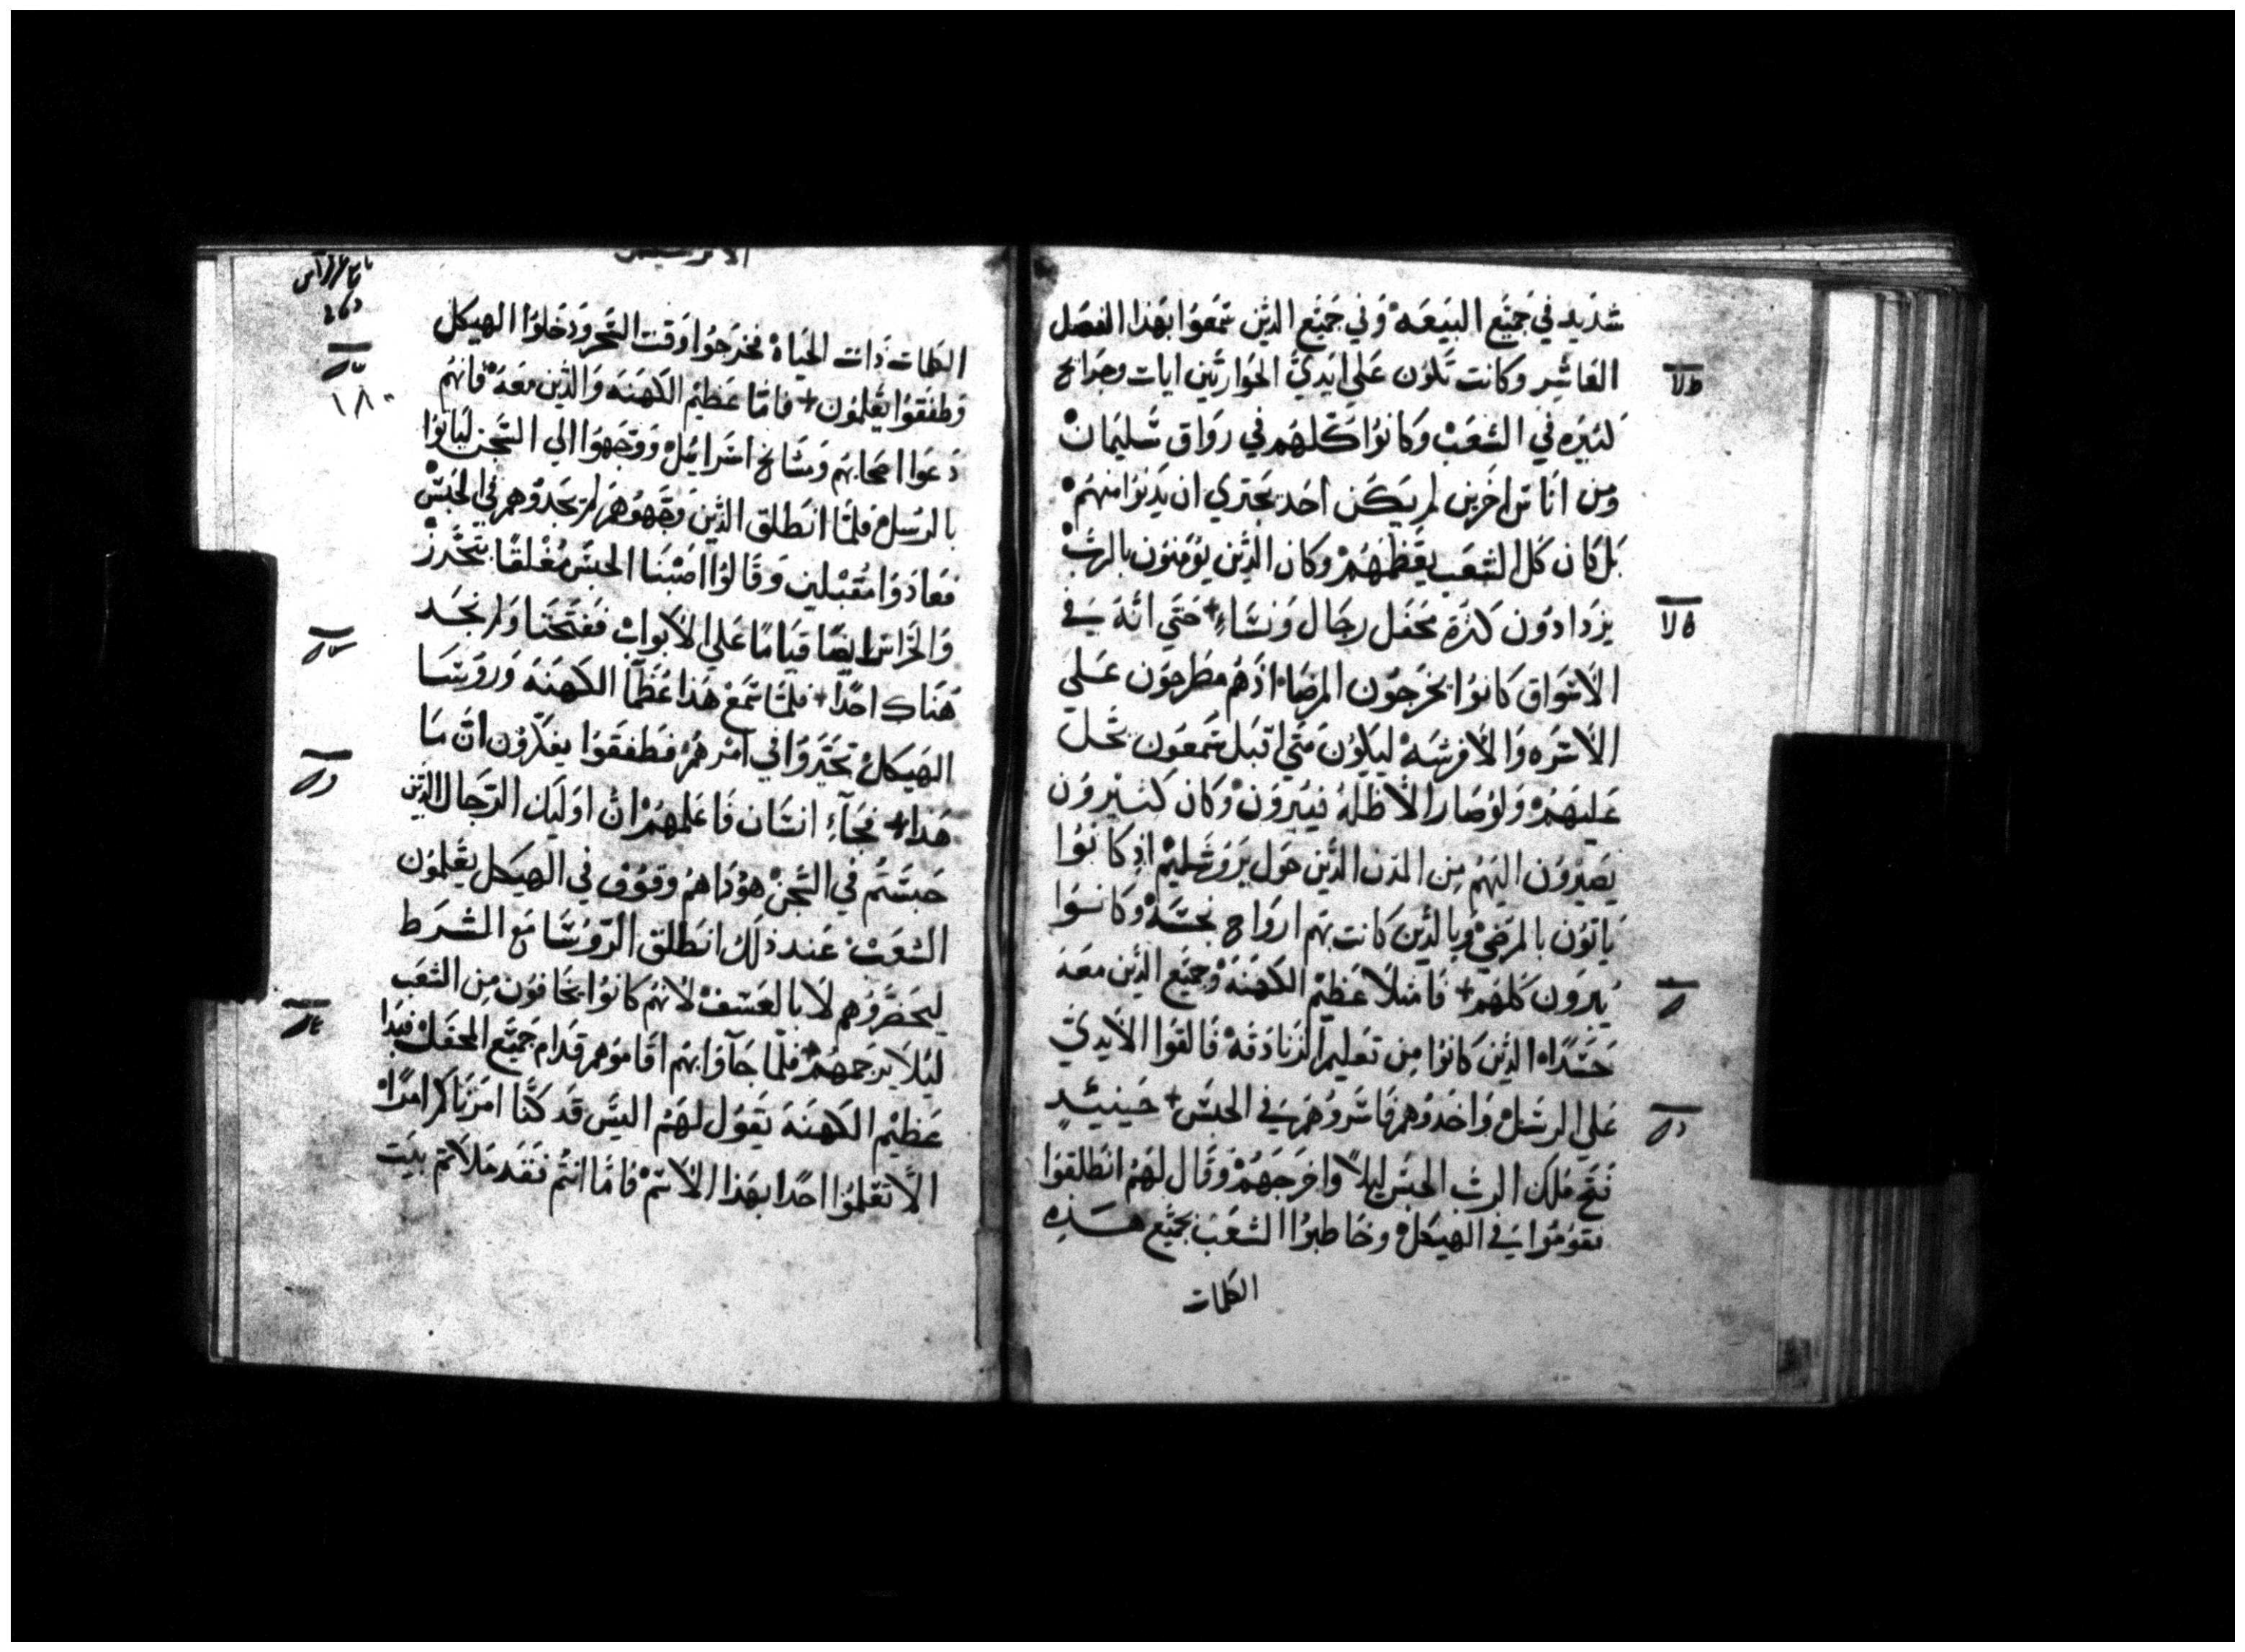 شديد في جميع البيعه وفي جميع الذين سمعوا بهذا الفصل
العاشر وكانت تكون علي ايدي الحواريين ايات وجرايح
كثيره في الشعب وكانوا كلهم في رواق سليمان
ومن اناس اخرين لم يكن احد يجتري ان يدنوا منهم
بل كان كل الشعب يعظمهم وكان الذين يومنون بالرب
يزدادون كثرة محفل رجال ونساء + حتي انه في
الاسواق كانوا يخرجون المرضاء اذهم مطرحون علي
الاسره والافرشه ليكون متي اقبل شمعون تحل
عليهم ولو صار الاظله فيبرون وكان كثيرون
يصيرون اليهم من المدن الذين حول يروشليم اذ كانوا
ياتون بالمرضي وبالذين كانت بهم ارواح نجسه وكانوا
يبرون كلهم + فامتلا عظيم الكهنه وجميع الذين معه
حسدا الذين كانوا من تعليم الزنادقه فالقوا الايدي
علي الرسل واخذوهم فاسروهم في الحبس + حينيذ
فتح ملاك الرب الحبس ليلا واخرجهم وقال لهم انطلقوا
فقوموا في الهيكل وخاطبوا الشعب بجميع هذه
الكلمات
الكلمات ذات الحياة فخرجوا وقت السحر ودخلوا الهيكل
وطفقوا يعلمون + فاما عظيم الكهنه والذين معه فانهم
دعوا اصحابهم ومشايخ اسراييل ووجهوا الي السجن لياتوا
بالرسل فلما انطلق الذين وجهوهم لم يجدوهم في الحبس
فعادوا مقبلين وقالوا اصبنا الحبس مغلقا بتحرز
والحراس ايضا قياما علي الابواب ففتحنا ولم نجد
هناك احدا + فلما سمع هذا عظما الكهنه وروسا
الهيكل تحيروا في امرهم فطفقوا يفكرون ان ما
هذا + فجاء انسان فاعلمهم ان اوليك الرجال الذين
حبستم في السجن هوذا هم وقوف في الهيكل يعلمون
الشعب عند ذلك انطلق الروسا مع الشرط
ليحضروهم لا بالعسف لانهم كانوا يخافون من الشعب
ليلا يرجمهم فلما جاوا بهم اقاموهم قدام جميع المحفل فبدا
عظيم الكهنه يقول لهم اليس قد كنا امرناكم امرا
الا تعلموا احدا بهذا الاسم فاما انتم فقد ملاتم بيت
١٨٠